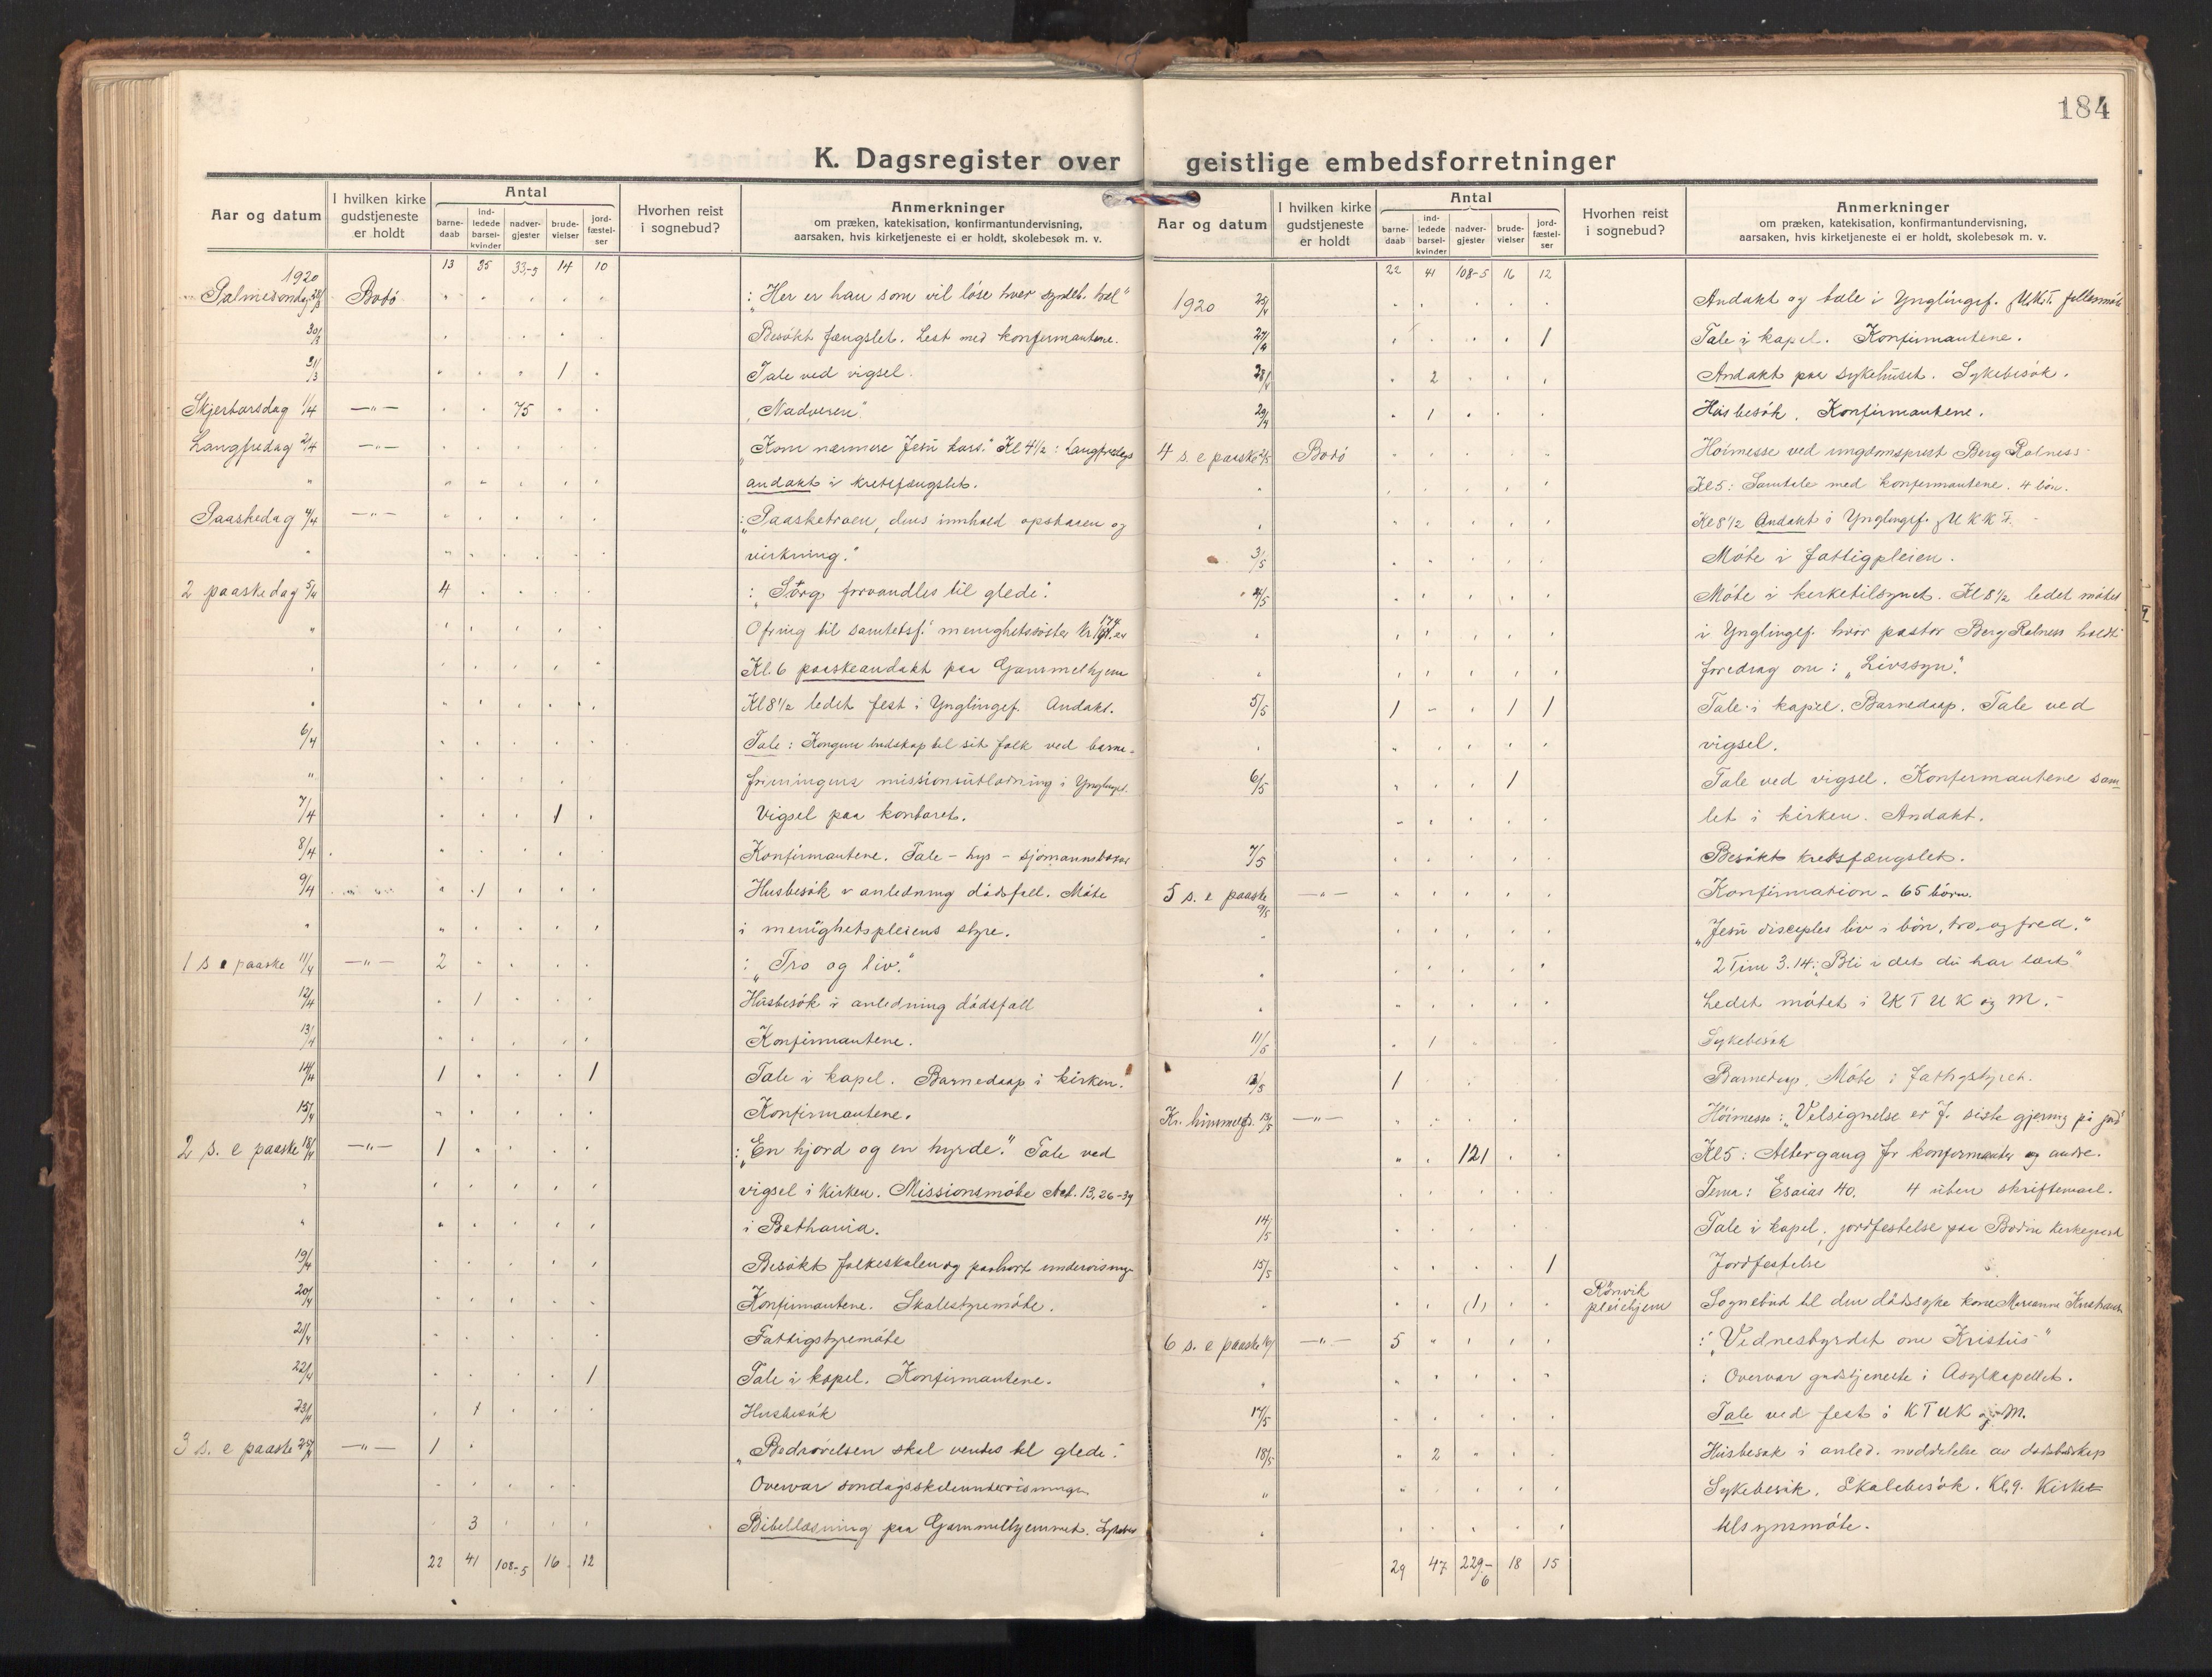 184
K. Dagsregister over geistlige embedsforretninger
Aar og datum
I hvilken kirke gudstjeneste er holdt
Antal
barne-daab
ind-ledede barsel-kvinder
nadver-gjester
brude-vielser
jord-fæstel-ser
Hvorhen reist i sognebud?
Anmerkninger
om præken, katekisation, konfirmantundervisning,
aarsaken, hvis kirketjeneste ei er holdt, skolebesøk m. v.
1920 13 35 33-5 14 10
Palmesøndag 28/3 Bodø : "Her er han som vil løse hver
30/3 Besøkt fængslet. Lest med konfirmantene.
31/3 1 Tale ved vigsel.
Skjertorsdag 1/4 —"— 75 "Nadveren"
Langfredag 2/4 —"— "Kom nærmere Jesu kors." Kl 4 1/2 : Langfredags
" andakt i kretsfængslet.
Paaskedag 4/4 —"— : "Paasketroen, dens innhold opstaaen og
" virkning."
2 paaskedag 5/4 4 : "Sorg forvandles til glede".
" Ofring til menighetssøster Kr
Kl. 6 paaskeandakt paa Gammelhjem
" Kl 8 1/2 ledet fest i Ynglingef. Andakt.
6/4 Tale: Kongens budskap til sit folk ved barne-
" missionsutlodning i Ynglingef.
7/4 1 Vigsel paa kontoret.
8/4 Konfirmantene. Tale - Lys - sjømannsbasar
9/4 1 Husbesøk i anledning dødsfall. Møte
" i menighetspleiens styre.
1 s e paaske 11/4 —"— 2 : "Tro og liv."
12/4 1 Husbesøk i anledning dødsfall
13/4 Konfirmantene.
14/4 1 1 Tale i kapel. Barnedaap i kirken.
15/4 Konfirmantene.
2 s. e paaske 18/4 —"— 1 : "En hjord og en hyrde." Tale ved
" vigsel i kirken. Missionsmøte Act. 13, 26-39
" i Bethania.
19/4 Besøkt folkeskolen og paahørt undervisning
20/4 Konfirmantene. Skolestyremøte.
21/4 Fattigstyremøte
22/4 1 Tale i kapel. Konfirmantene.
23/4 1 Husbesøk
3 s. e paaske 25/4 —"— 1 "Bedrøvelsen skal vendes til glede".
Overvar søndagsskoleundervisningen
3 Bibellæsning paa Gammelhjemmet.
22 41 108-5 16 12
Aar og datum
I hvilken kirke gudstjeneste er holdt
Antal
barne-daab
ind-ledede barsel-kvinder
nadver-gjester
brude-vielser
jord-fæstel-ser
Hvorhen reist i sognebud?
Anmerkninger
om præken, katekisation, konfirmantundervisning,
aarsaken, hvis kirketjeneste ei er holdt, skolebesøk m. v.
22 41 108-5 16 12
1920 25/4 Andakt og tale i Ynglingef. fellesmøte
27/4 1 Tale i kapel. Konfirmantene.
28/4 2 Andakt paa sykehuset. Sykebesøk.
29/4 1 Husbesøk. Konfirmantene.
4 s. e paaske 2/5 Bodø Høimesse ved ungdomsprest Berg Rolness
" Kl 5: Samtale med konfirmantene. 4 bøn.
" Kl 8 1/2 Andakt i Ynglingef.
3/5 Møte i fattigpleien.
4/5 Møte i kirketilsynet. Kl 8 1/2 ledet møtet
" i Ynglingef. hvor pastor Berg Rolness holdt
" foredrag om: "Livssyn."
5/5 1 1 1 Tale i kapel. Barnedaap. Tale ved
" vigsel.
6/5 1 Tale ved vigsel. Konfirmantene sam-
let i kirken. Andakt.
7/5 Besøkt kretsfængslet.
5 s. e paaske 9/5 —"— Konfirmation - 65 børn.
" "Jesu disciples liv i bøn, tro og fred."
" 2 Tim 3.14: "Bli i det du har lært"
" Ledet møtet i K T U K og M.
11/5 1 Sykebesøk
12/5 1 Barnedaap. Møte i fattigstyret.
Kr. himmelfd. 13/5 —"— Høimesse: "Velsignelse er J. siste gjerning på jord
121 Kl 5: Altergang for konfirmanter og andre.
Tema: Esaias 40. 4 uten skriftemaal.
14/5 Tale i kapel, jordfestelse paa Bodin kirkegaard
15/5 1 Jordfestelse
" (1) Rønvik pleiehjem Sognebud til den dødssyke kone Marianne
6 s. e paaske 16/ —"— 5 : "Vidnesbyrdet om Kristus"
" : Overvar gudstjeneste i Asylkapellet.
17/5 Tale ved fest i K T U K og M.
18/5 2 Husbesøk i anled. meddelelse av dødsbudskap
" Sykebesøk. Skolebesøk. Kl. 9. Kirke-
" tilsynsmøte.
29 47 229-6 18 15